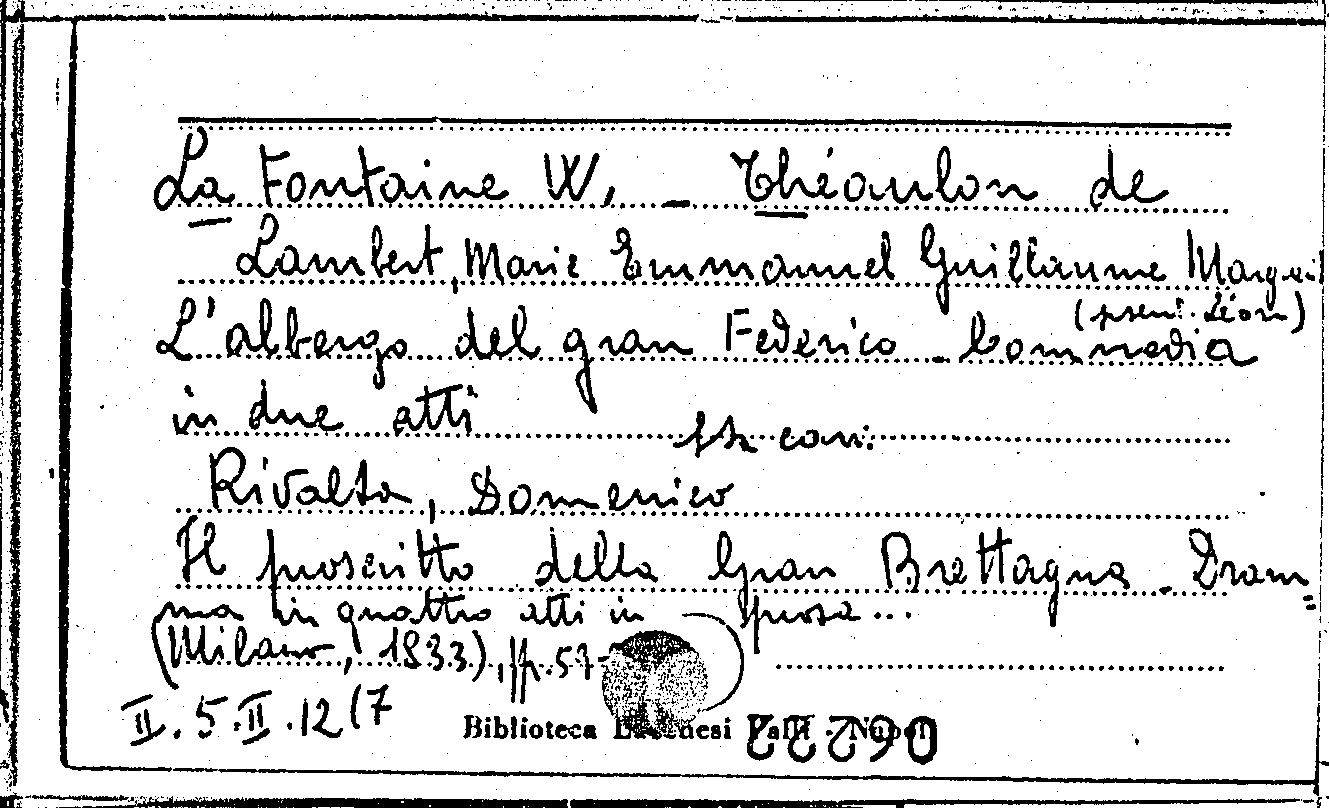 La Fontaine W. – Théaulon de
Lambert, Marie Emmanuel Guillaume Marguerit
(pseud. Léon)
L'albergo del gran Federico – Commedia
in due atti
Sta con:
Rivalta, Domenico
Il proscritto della Gran Brettagna – Dram„
ma in quattro atti in prosa...
(Milano, 1833), pp. 57-
II. 5. II. 12 (7
Biblioteca Lucchesi Palli - Napoli
06222